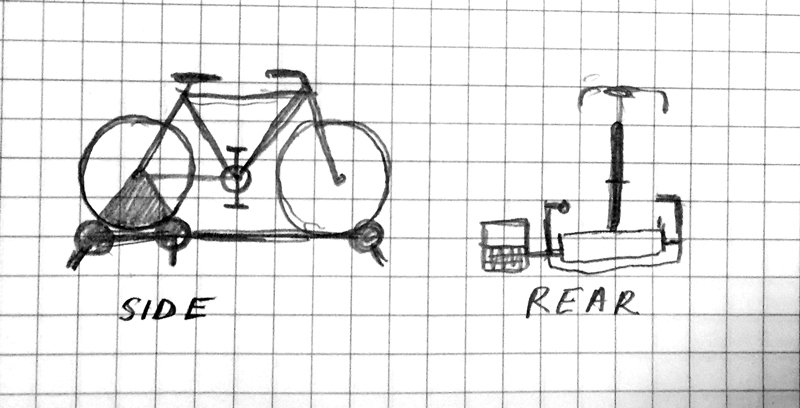 SIDE
REAR